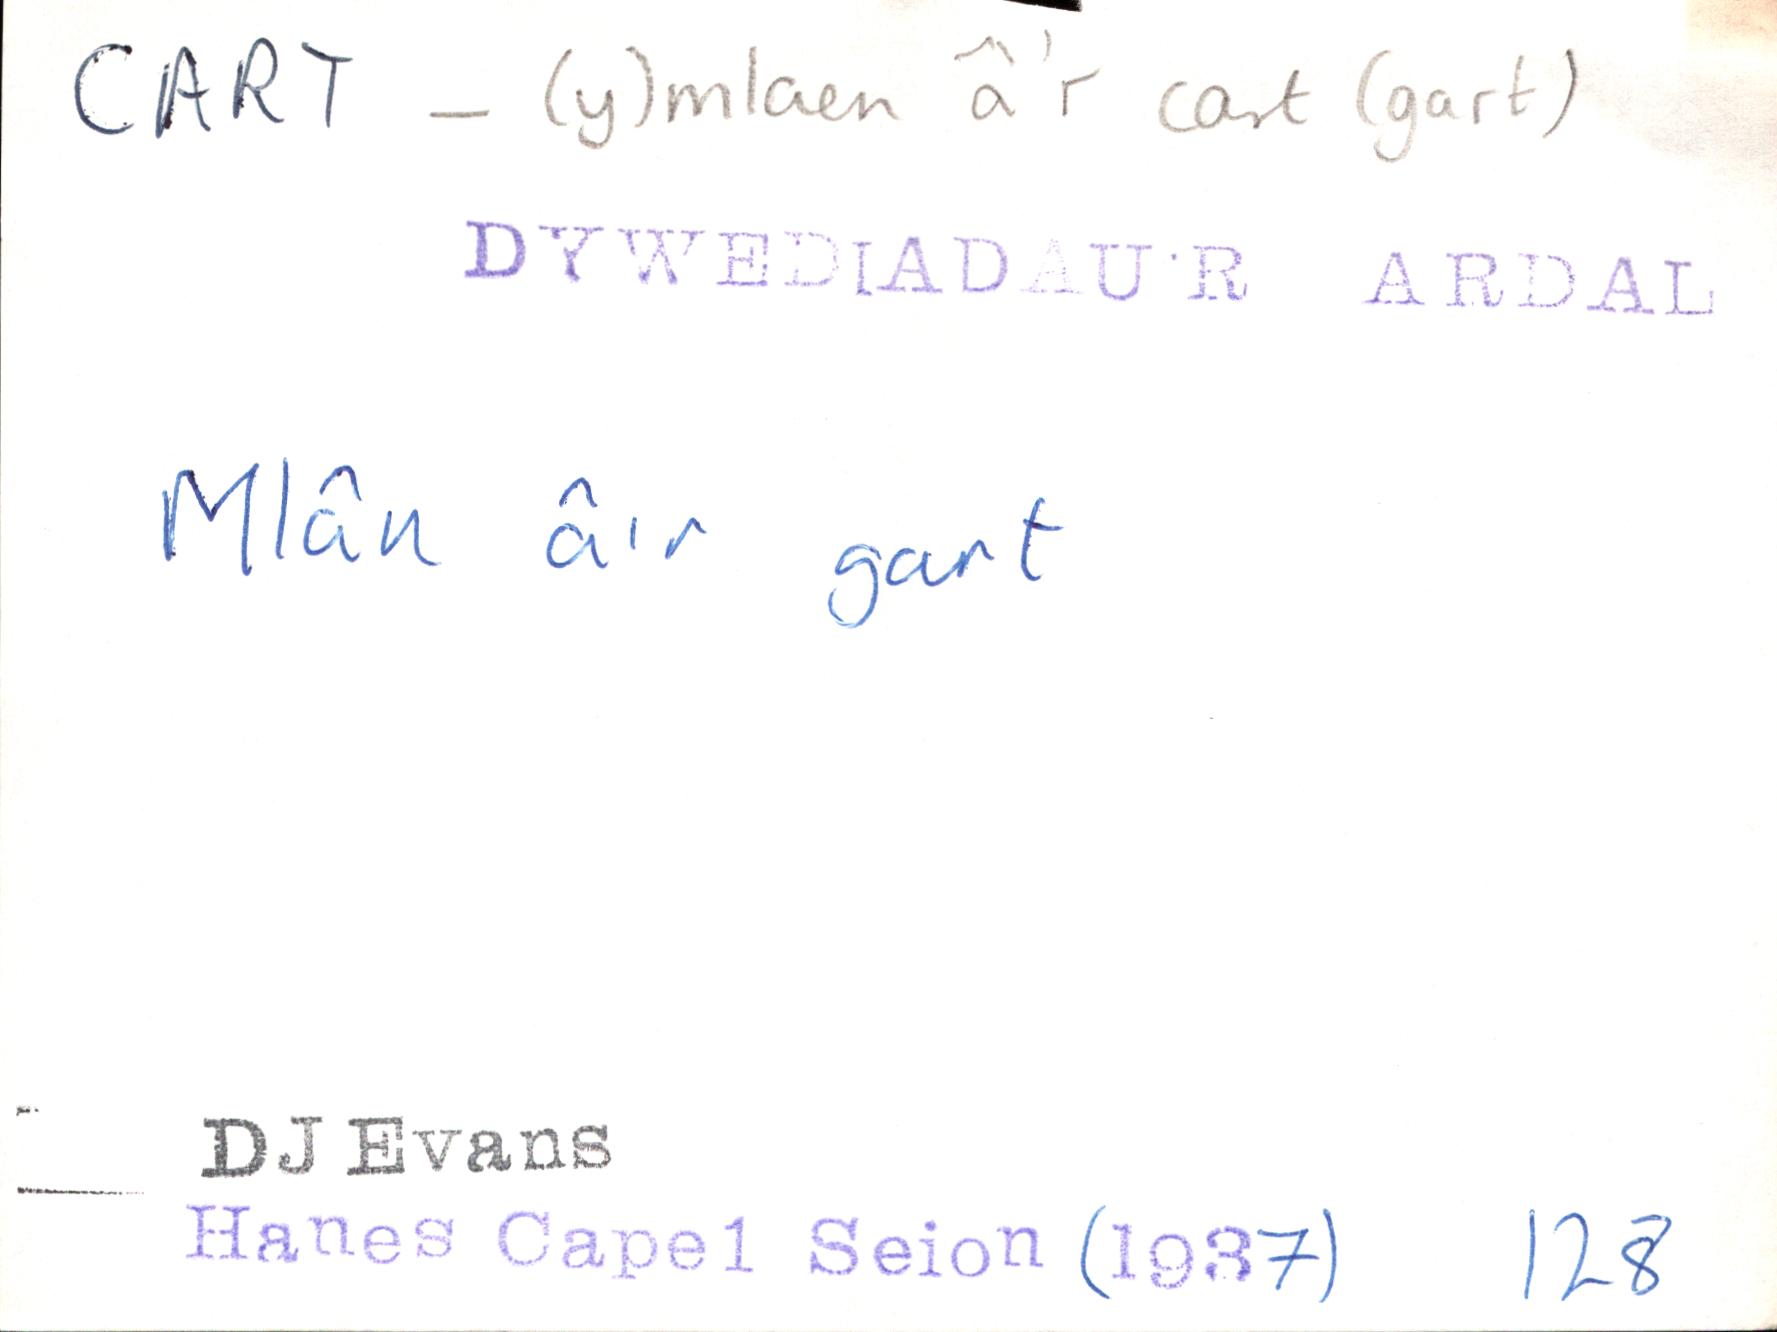 CART – (y)mlaen â'r cart (gart)
DYWEDIADAU'R ARDAL
Mlân â'r gart
DJ Evans
Hanes Capel Seion (1937) 128